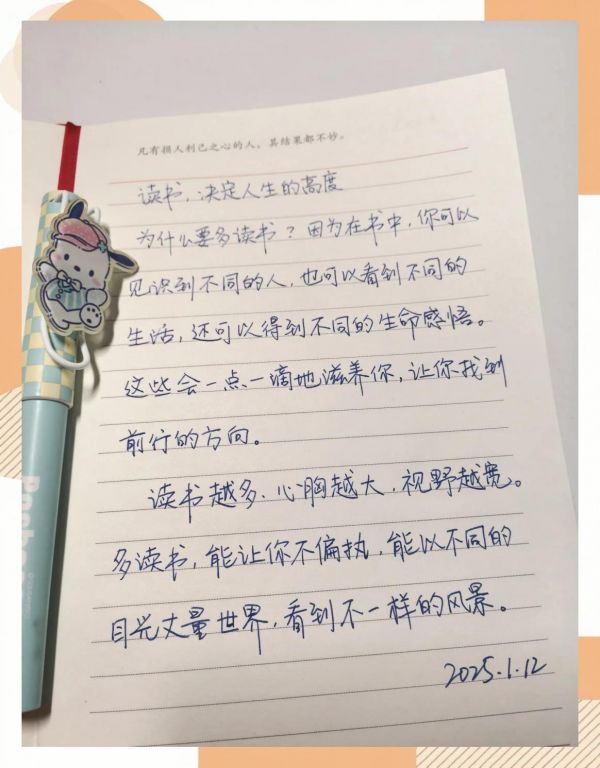 凡有损人利己之心的人，其结果都不妙。
读书，决定人生的高度
为什么要多读书？因为在书中，你可以
见识到不同的人，也可以看到不同的
生活，还可以得到不同的生命感悟。
这些会一点一滴地滋养你，让你找到
前行的方向。
读书越多、心胸越大，视野越宽。
多读书，能让你不偏执，能以不同的
目光丈量世界，看到不一样的风景。
2025.1.12